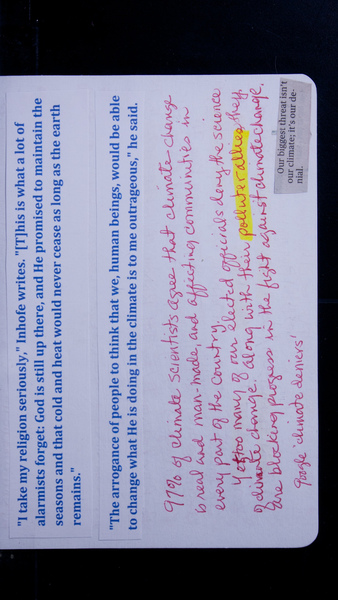 "I take my religion seriously," Inhofe writes. "[T]his is what a lot of
alarmists forget: God is still up there, and He promised to maintain the
seasons and that cold and heat would never cease as long as the earth
remains."
"The arrogance of people to think that we, human beings, would be able
to change what He is doing in the climate is to me outrageous," he said.
97% of climate scientists agree that climate change
is real and man-made, and affecting communities in
every part of the country
Yet too many of our elected officials deny the science
of climate change. Along with their polluter allies, they
are blocking progress in the fight against climate change.
google climate deniers'
Our biggest threat isn't
our climate; it's our de-
nial.